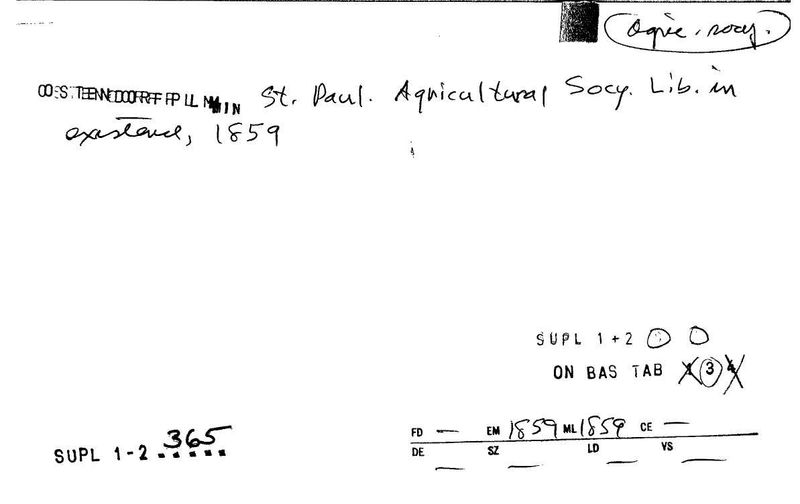 Agric. socy.
St. Paul. Agricultural Socy. Lib. in
existence, 1859
SUPL 1+2
ON BAS TAB 1 3 4
SUPL 1-2 365
FD — EM 1859 ML 1859 CE —
DE SZ LD VS